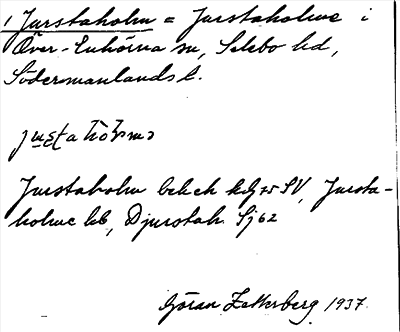 1 Jurstaholm = Jurstaholme i
Över-Enhörna sn, Selebo hd,
Södermanlands l.
Jurstaholm bebeh kdg 75 SV, Jursta-
holme kb, Djurstah Sj 62
Göran Zetterberg 1937.